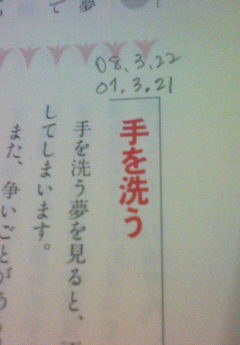 て夢
08.3.22
01.3.21
手を洗う
手を洗う夢を見ると、
してしまいます。
また、争いごとが